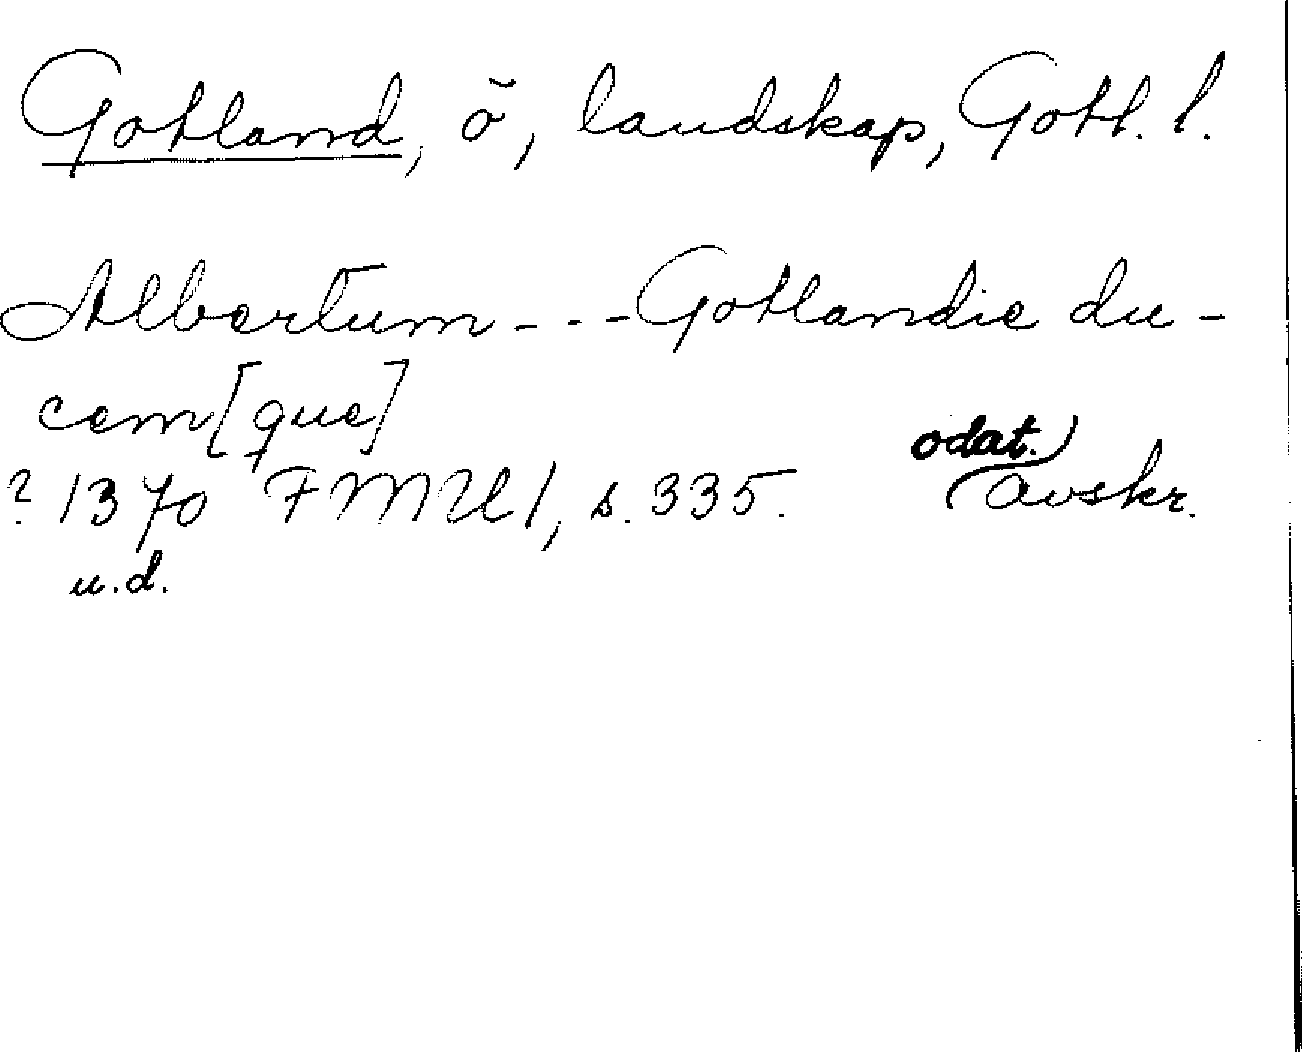 Gotland, ö, landskap, Gotl. l.
Albertum - - - Gotlandie du-
cem[que]
odat.
? 1370 FMU 1, s. 335. avskr.
u.d.